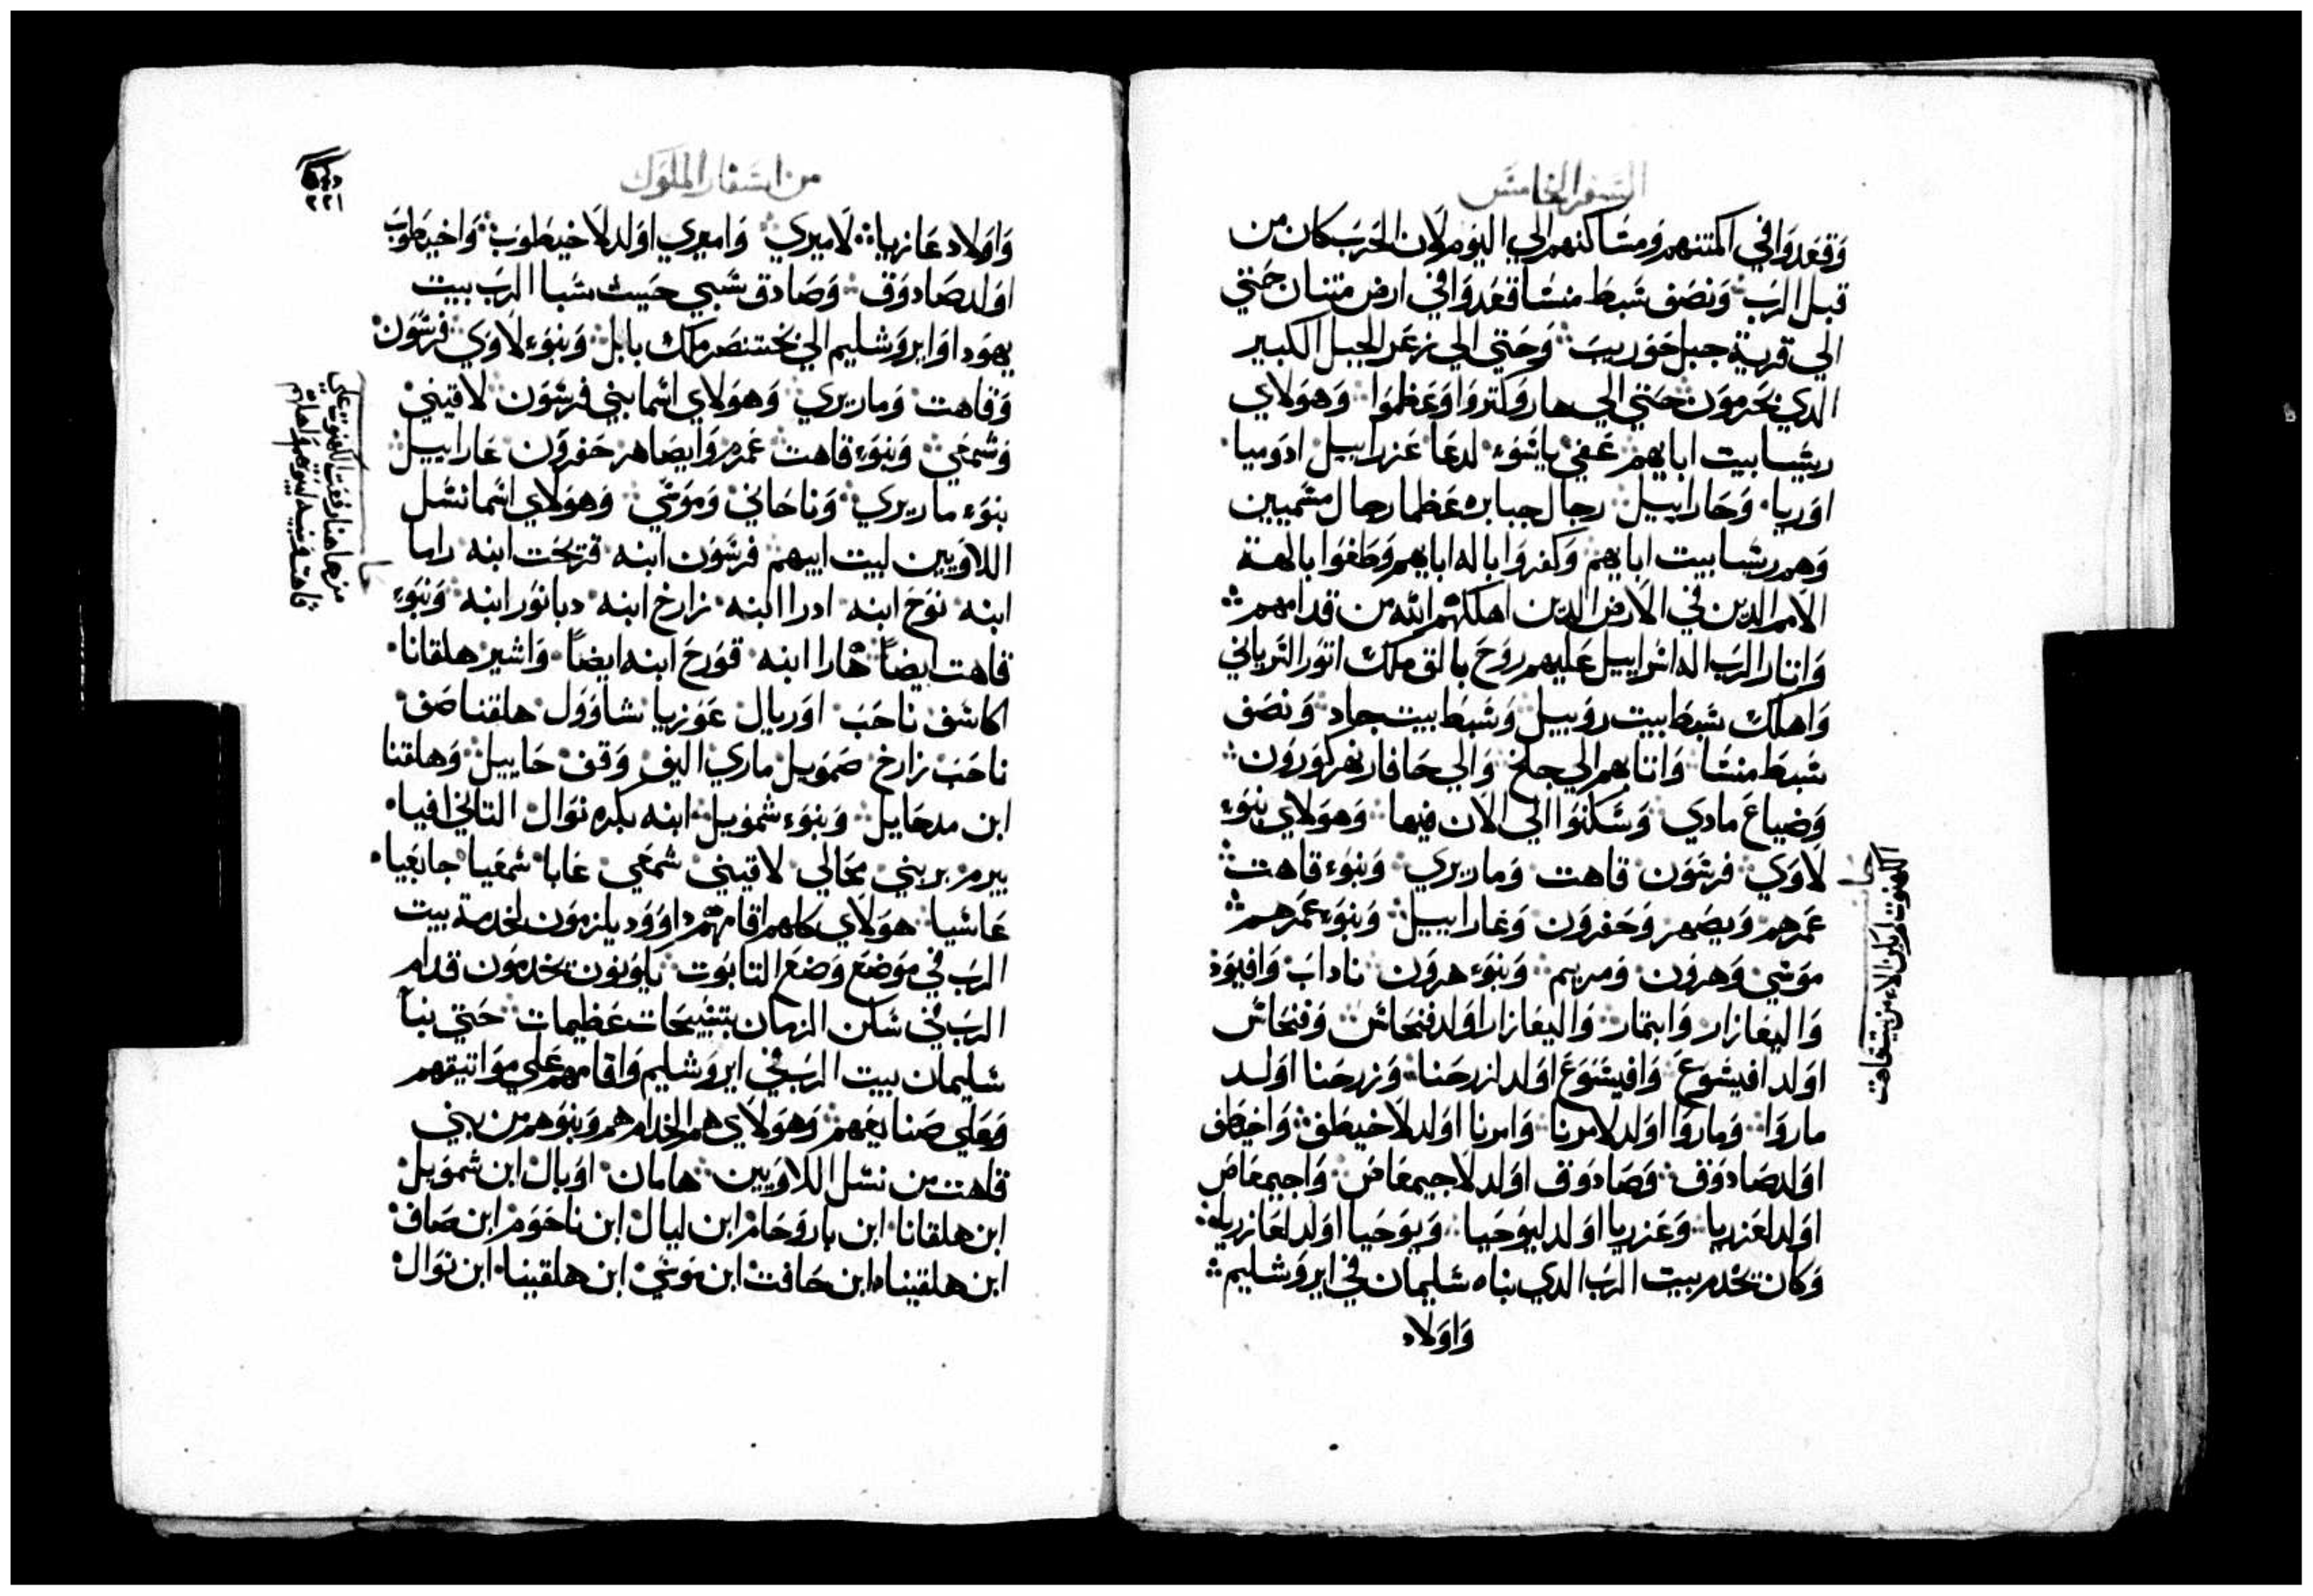 السفر الخامس
وَقعَدوَا في امكنتهم وَمسَاكنهم الي اليوَم لان الحَربَ كان من
قبل الربَ وَنصَف سَبطَ منسَا قعَدوَا في ارض متنان حَتي
الي قرية جبل حَوَريبَ وَحَتي الي زعَر الجبل الكبير
الدي يحَرموَن حَتي الي هار وَكتروَا وَعَظموَا وَهوَلاي
ريسَا بيت ابايهم عَفي ياشوَء لدعَا عَزراييل ادوَميا
اوَريا وَحَاراييل رجال جبابره عَظما رجال مسَميين
وَهم ريسَا بيت ابايهم وَكفروَا باله ابايهم وَطَغوَا بالهة
الامم الدين في الارض الدين اهلكهم الله من قدامهم
وَاتار الربَ اله اسَراييل عَليهم روَحَ بالق ملك اتوَر السَرياني
وَاهلك سَبطَ بيت روَبيل وَسَبطَ بيت جاد وَنصَف
سَبطَ منسَا وَاتا بهم الي جلخ وَالي حَافار نهر كوَروَن
وَضياعَ مادي وَسَكنوَا الي الان فيها وَهوَلاي بنوَء
لاوَي فرسَوَن قاهت وَماريري وَبنوَء قاهت
عَمرهم وَيصَهر وَحَفروَن وَغاراييل وَبنوَء عَمرهم
موَسَي وَهروَن وَمريم وَبنوَء هروَن ناداب وَافيوَد
وَاليعَازار وَايتمار وَاليعَازار اوَلد فنحَاس وَفنحَاس
اوَلد افيشوَعَ وَافيشوَعَ اوَلد لزرحَنا وَزرحَنا اوَلد
ماروَا وَماروَا اوَلد لامرنا وَامرنا اوَلد لاخيطَف وَاخيطَف
اوَلد صَادوَق وَصَادوَق اوَلد لاجيمعَاص وَاجيمعَاص
اوَلد لعَزريا وَعَزريا اوَلد ليوَحَيا وَيوَحَيا اوَلد لعَازريا
وَكان يخدم بيت الربَ الدي بناه سَليمان في ايروَشليم
وَاوَلاد
الكهنوت لم يكن الا من بيت قاهت
من اسَفار الملوَك
٢٢١
وَاوَلاد عَازريا لاميري وَاميري اوَلد لاخيطَوَبَ وَاخيطَوَبَ
اوَلد صَادوَق وَصَادق سَبي حَيث سَبا الربَ بيت
يهوَدا وَايروَشليم الي بختنصَر ملك بابل وَبنوَء لاوَي فرسَوَن
وَقاهت وَماريري وَهوَلاي اسَما بني فرسَوَن لاقيني
وَشمعَي وَبنوَء قاهت عَمرم وَايصَاهر حَفروَن عَاراييل
بنوَء ماريري وَناحَاني وَموَسَي وَهوَلاي اسَما نسَل
اللاوَيين لبيت ابيهم فرسَوَن ابنه قريحَت ابنه راما
ابنه نوَحَ ابنه ادرا ابنه زارخ ابنه دبانوَر ابنه وَبنوَء
قاهت ايضاً هارا ابنه قوَرحَ ابنه ايضاً وَاشير هلقانا
اكاشف ناحَبَ اوَريال عَوَزيا شاوَوَل هلقنا صَف
ناحَبَ زارخ صَموَيل ماري اليف وَقف حَاييل وَهلقنا
ابن مدحَايل وَبنوَء شموَيل ابنه بكره نوَال التالخ افيا
يرمز بربني مخالي لاقيني شمعَي عَابا شمعَيا جابعَيا
عَاشيا هوَلاي كلهم اقامهم داوَوَد يلزموَن لخدمة بيت
الربَ في موَضعَ وَضعَ التابوَت يكوَنوَن يخدموَن قدام
الربَ في سَكن الزمان بتسَبيحَات عَظيمات حَتي بنا
سَليمان بيت الربَ في ايروَشليم وَاقامهم عَلي موَاتيقهم
وَعَلي صَنايعَهم وَهوَلاي هم الخدام هم وَبنوَهم من بني
قاهت من نسَل اللاوَيين هامان اوَيال ابن شموَيل
ابن هلقانا ابن باروَحَام ابن ليال ابن ناحَوَم ابن صَاف
ابن هلقينا ابن حَافت ابن موَسَي ابن هلقينا ابن نوَال
من هاهنا رفعت الكهنوت علي